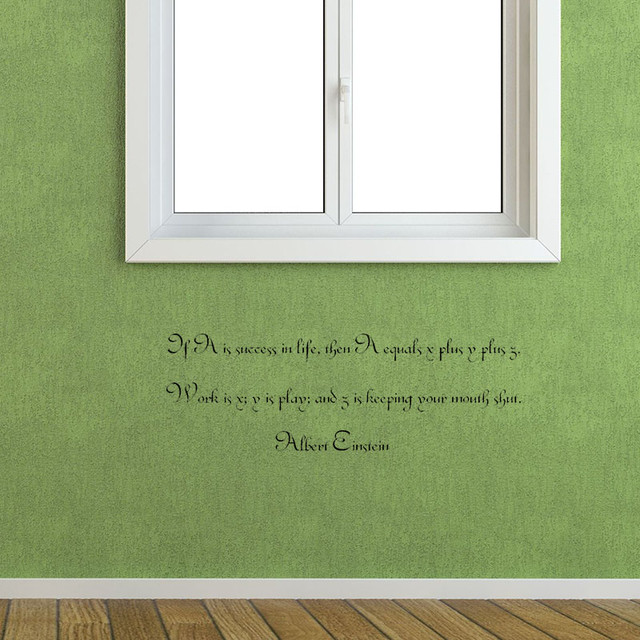 If A is success in life, then A equals x plus y plus z.
Work is x; y is play; and z is keeping your mouth shut.
Albert Einstein